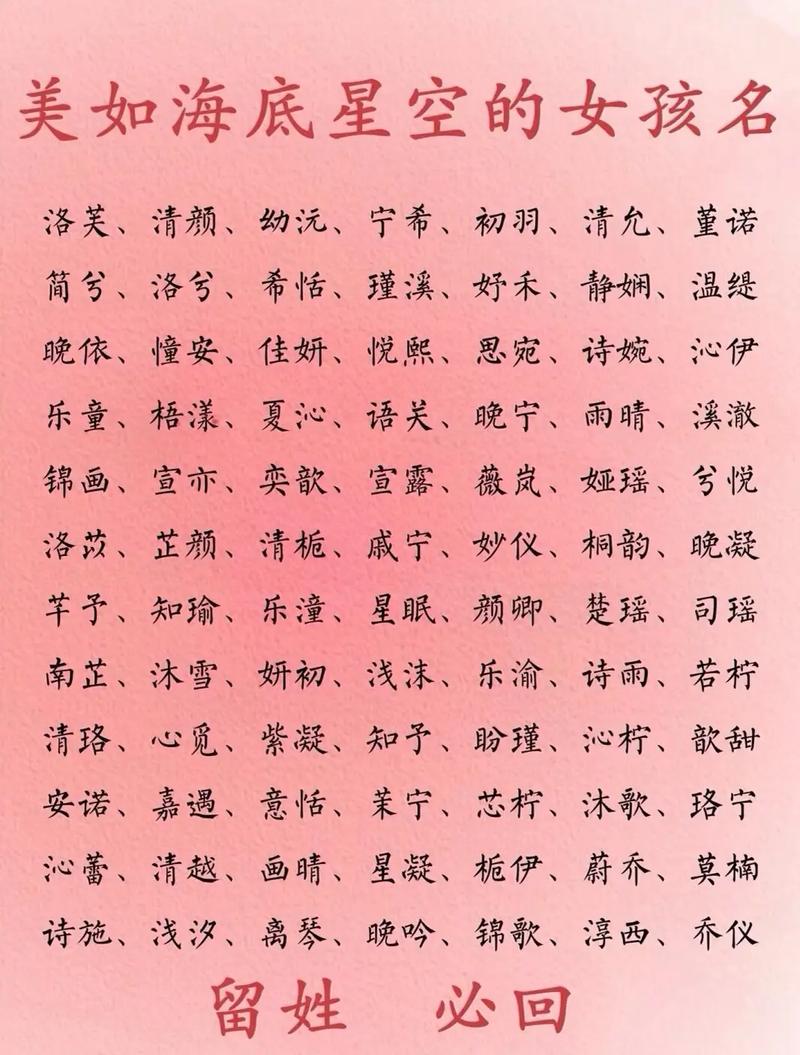 美如海底星空的女孩名
洛芙、清颜、幼沅、宁希、初羽、清允、堇诺
简兮、洛兮、希恬、瑾溪、妤禾、静娴、温缇
晚依、憧安、佳妍、悦熙、思宛、诗婉、沁伊
乐童、梧漾、夏沁、语关、晚宁、雨晴、溪澈
锦画、宣亦、奕歆、宣露、薇岚、娅瑶、兮悦
洛苡、芷颜、清栀、戚宁、妙仪、桐韵、晚凝
芊予、知瑜、乐潼、星眠、颜卿、楚瑶、司瑶
南芷、沐雪、妍初、浅沫、乐渝、诗雨、若柠
清珞、心觅、紫凝、知予、盼瑾、沁柠、歆甜
安诺、嘉遇、意恬、茉宁、芯柠、沐歌、珞宁
沁蕾、清越、画晴、星凝、栀伊、蔚乔、莫楠
诗施、浅汐、离琴、晚吟、锦歌、淳西、乔仪
留姓 必回